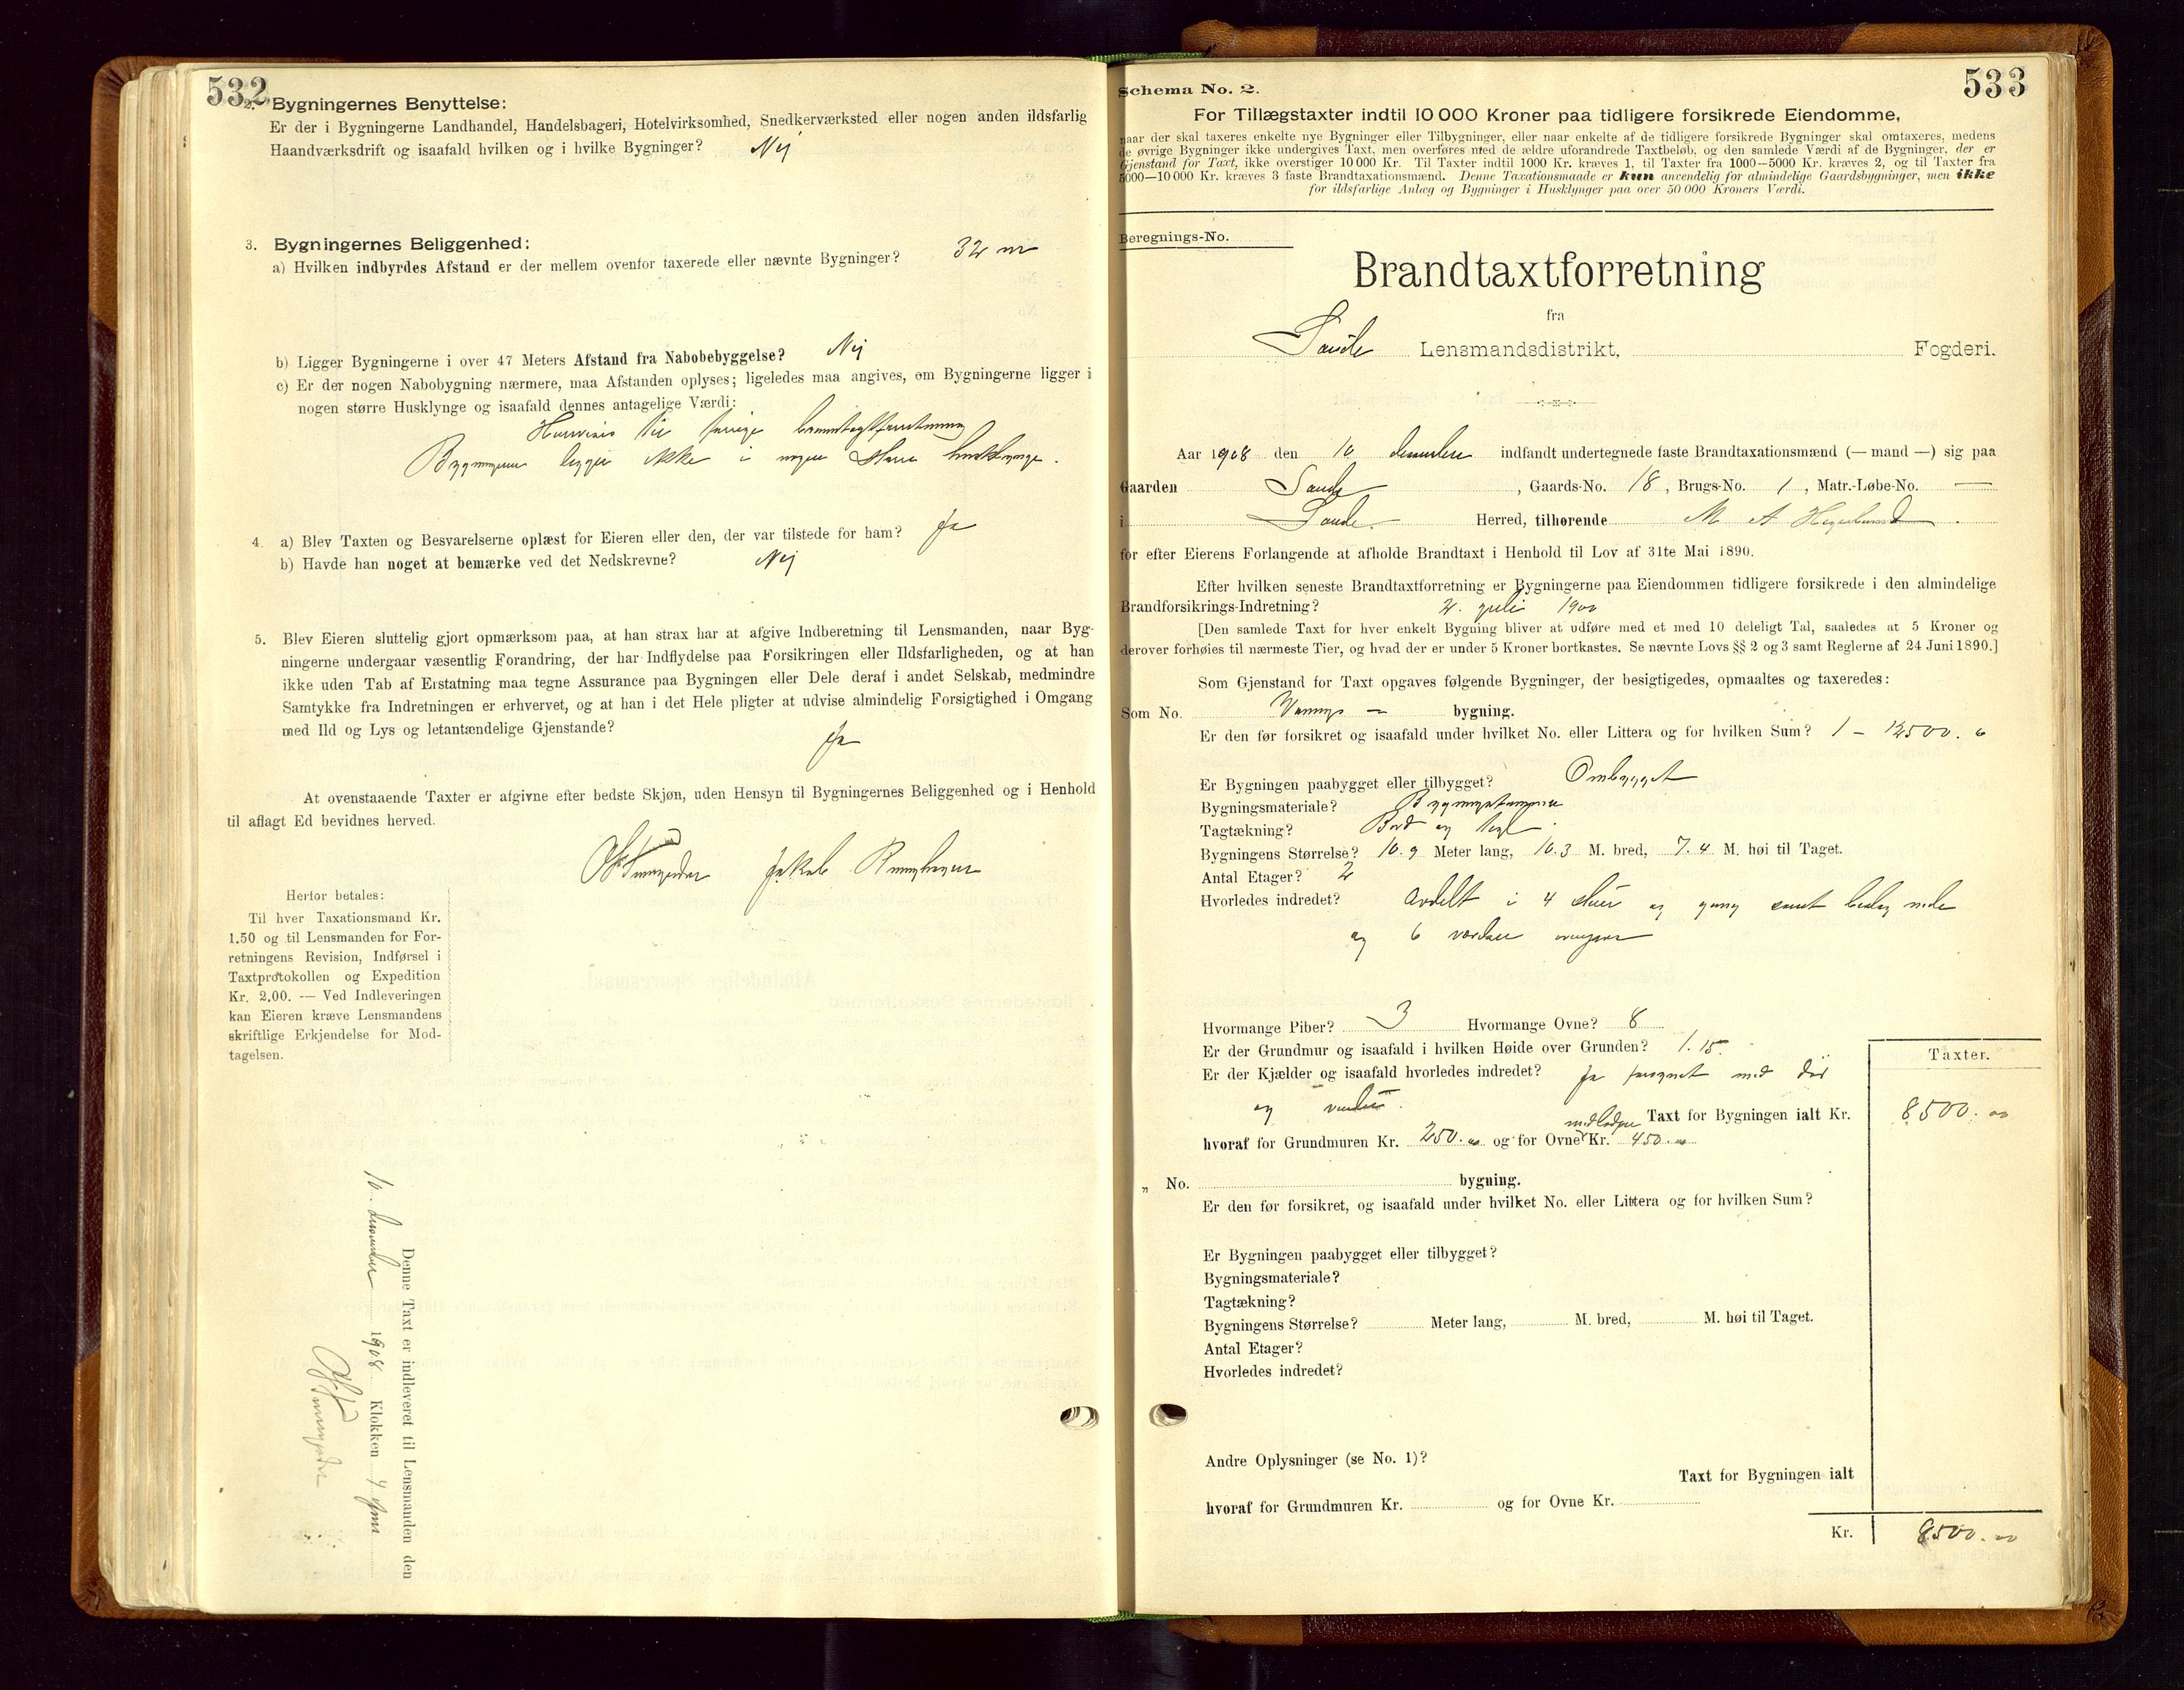 532
2. Bygningernes Benyttelse:
Er der i Bygningerne Landhandel, Handelsbageri, Hotelvirksomhed, Snedkerværksted eller nogen anden ildsfarlig
Haandværksdrift og isaafald hvilken og i hvilke Bygninger? Nej
3. Bygningernes Beliggenhed:
a) Hvilken indbyrdes Afstand er der mellem ovenfor taxerede eller nævnte Bygninger? 32 m
b) Ligger Bygningerne i over 47 Meters Afstand fra Nabobebyggelse? Nej
c) Er der nogen Nabobygning nærmere, maa Afstanden oplyses; ligeledes maa angives, om Bygningerne ligger i
nogen større Husklynge og isaafald dennes antagelige Værdi:
Henvises til forrige brandtaxtforretning
Bygningerne ligger ikke i nogen større husklynge.
4. a) Blev Taxten og Besvarelserne oplæst for Eieren eller den, der var tilstede for ham? Ja
b) Havde han noget at bemærke ved det Nedskrevne? Nej
5. Blev Eieren sluttelig gjort opmærksom paa, at han strax har at afgive Indberetning til Lensmanden, naar Byg-
ningerne undergaar væsentlig Forandring, der har Indflydelse paa Forsikringen eller Ildsfarligheden, og at han
ikke uden Tab af Erstatning maa tegne Assurance paa Bygningen eller Dele deraf i andet Selskab, medmindre
Samtykke fra Indretningen er erhvervet, og at han i det Hele pligter at udvise almindelig Forsigtighed i Omgang
med Ild og Lys og letantændelige Gjenstande?
Ja
At ovenstaaende Taxter er afgivne efter bedste Skjøn, uden Hensyn til Bygningernes Beliggenhed og i Henhold
til aflagt Ed bevidnes herved.
Jakob
Herfor betales:
Til hver Taxationsmand Kr.
1.50 og til Lensmanden for For-
retningens Revision, Indførsel i
Taxtprotokollen og Expedition
Kr. 2.00. — Ved Indleveringen
kan Eieren kræve Lensmandens
skriftlige Erkjendelse for Mod-
tagelsen.
Denne Taxt er indleveret til Lensmanden den
10. december 1908 Klokken
533
Schema No. 2.
For Tillægstaxter indtil 10 000 Kroner paa tidligere forsikrede Eiendomme,
naar der skal taxeres enkelte nye Bygninger eller Tilbygninger, eller naar enkelte af de tidligere forsikrede Bygninger skal omtaxeres, medens
de øvrige Bygninger ikke undergives Taxt, men overføres med de ældre uforandrede Taxtbeløb, og den samlede Værdi af de Bygninger, der er
Gjenstand for Taxt, ikke overstiger 10 000 Kr. Til Taxter indtil 1000 Kr. kræves 1, til Taxter fra 1000—5000 Kr. kræves 2, og til Taxter fra
5000—10 000 Kr. kræves 3 faste Brandtaxationsmænd. Denne Taxationsmaade er kun anvendelig for almindelige Gaardsbygninger, men ikke
for ildsfarlige Anlæg og Bygninger i Husklynger paa over 50 000 Kroners Værdi.
Beregnings-No.
Brandtaxtforretning
fra
Sande Lensmandsdistrikt, Fogderi.
Aar 1908 den 10 december indfandt undertegnede faste Brandtaxationsmænd (— mand —) sig paa
Gaarden Sande, Gaards-No. 18, Brugs-No. 1, Matr.-Løbe-No. —
i Sande Herred, tilhørende M. A.
for efter Eierens Forlangende at afholde Brandtaxt i Henhold til Lov af 31te Mai 1890.
Efter hvilken seneste Brandtaxtforretning er Bygningerne paa Eiendommen tidligere forsikrede i den almindelige
Brandforsikrings-Indretning? 2. juli 1900
[Den samlede Taxt for hver enkelt Bygning bliver at udføre med et med 10 deleligt Tal, saaledes at 5 Kroner og
derover forhøies til nærmeste Tier, og hvad der er under 5 Kroner bortkastes. Se nævnte Lovs §§ 2 og 3 samt Reglerne af 24 Juni 1890.]
Som Gjenstand for Taxt opgaves følgende Bygninger, der besigtigedes, opmaaltes og taxeredes:
Som No. Vånings — bygning.
Er den før forsikret og isaafald under hvilket No. eller Littera og for hvilken Sum? 1 —
Er Bygningen paabygget eller tilbygget? Ombygget
Bygningsmateriale? Bygningstømmer
Tagtækning? Bord og tegl
Bygningens Størrelse? 10.9 Meter lang, 10.3 M. bred, 7.4 M. høi til Taget.
Antal Etager? 2
Hvorledes indredet? Avdelt i 4 stuer og gang samt nede
og 6 værelser ovenpaa
Hvormange Piber? 3 Hvormange Ovne? 8
Er der Grundmur og isaafald i hvilken Høide over Grunden? 1.15
Er der Kjælder og isaafald hvorledes indredet? Ja forsynet med dør
og vinduer.
Taxt for Bygningen ialt Kr. 8500.00
hvoraf for Grundmuren Kr. 250.00 og for Ovne Kr. 450.00
Taxter.
„ No. bygning.
Er den før forsikret, og isaafald under hvilket No. eller Littera og for hvilken Sum?
Er Bygningen paabygget eller tilbygget?
Bygningsmateriale?
Tagtækning?
Bygningens Størrelse? Meter lang, M. bred, M. høi til Taget.
Antal Etager?
Hvorledes indredet?
Andre Oplysninger (se No. 1)?
Taxt for Bygningen ialt
hvoraf for Grundmuren Kr. og for Ovne Kr.
Kr. 8500.00